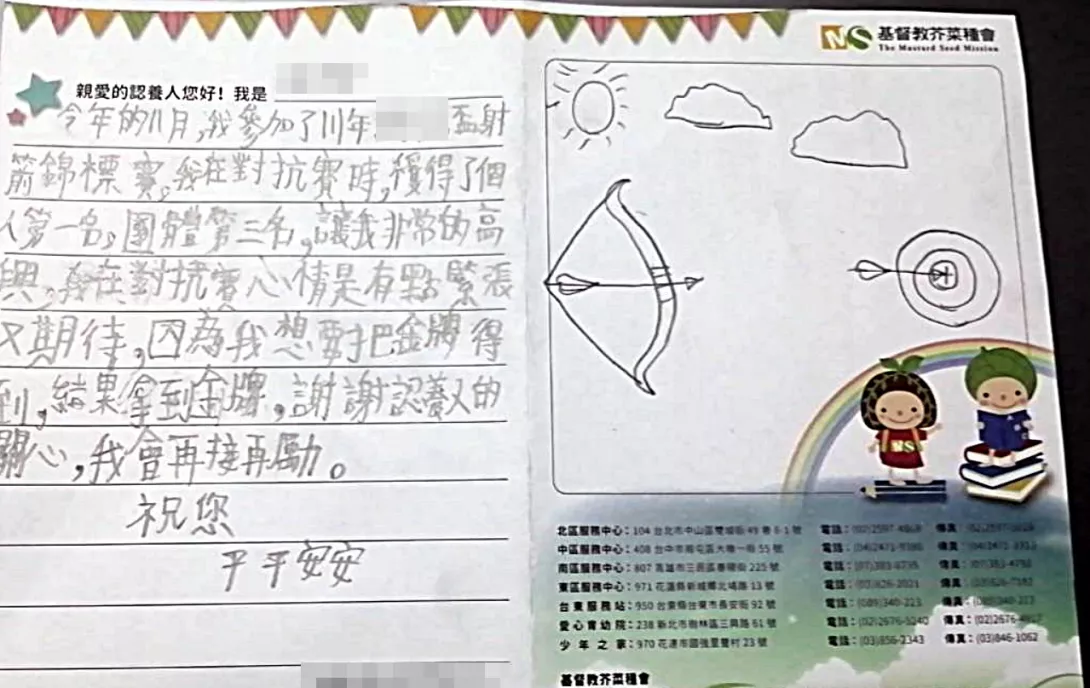 基督教芥菜種會
The Mustard Seed Mission
親愛的認養人您好!我是
今年的11月,我參加了111年 盃射
箭錦標賽,我在對抗賽時,獲得了個
人第一名,團體第三名,讓我非常的高
興,我在對抗賽心情是有點緊張
又期待,因為我想要把金牌得
到,結果拿到金牌,謝謝認養人的
關心,我會再接再勵。
祝您
平平安安
NS
北區服務中心:104 台北市中山區雙城街49巷6-1號 電話: 傳真:
中區服務中心:408 台中市南屯區大墩一街55號 電話: 傳真:
南區服務中心:807 高雄市三民區春陽街225號 電話: 傳真:
東區服務中心:971 花蓮縣新城鄉北埔路13號 電話: 傳真:
台東服務站:950 台東縣台東市長安街92號 電話:(089)340-223 傳真:
愛心育幼院:238 新北市樹林區三興路61號 電話:(02)2676-5240 傳真:
少年之家:970 花蓮市國強里豐村23號 電話:(03)856-2343 傳真:(03)846-1062
基督教芥菜種會